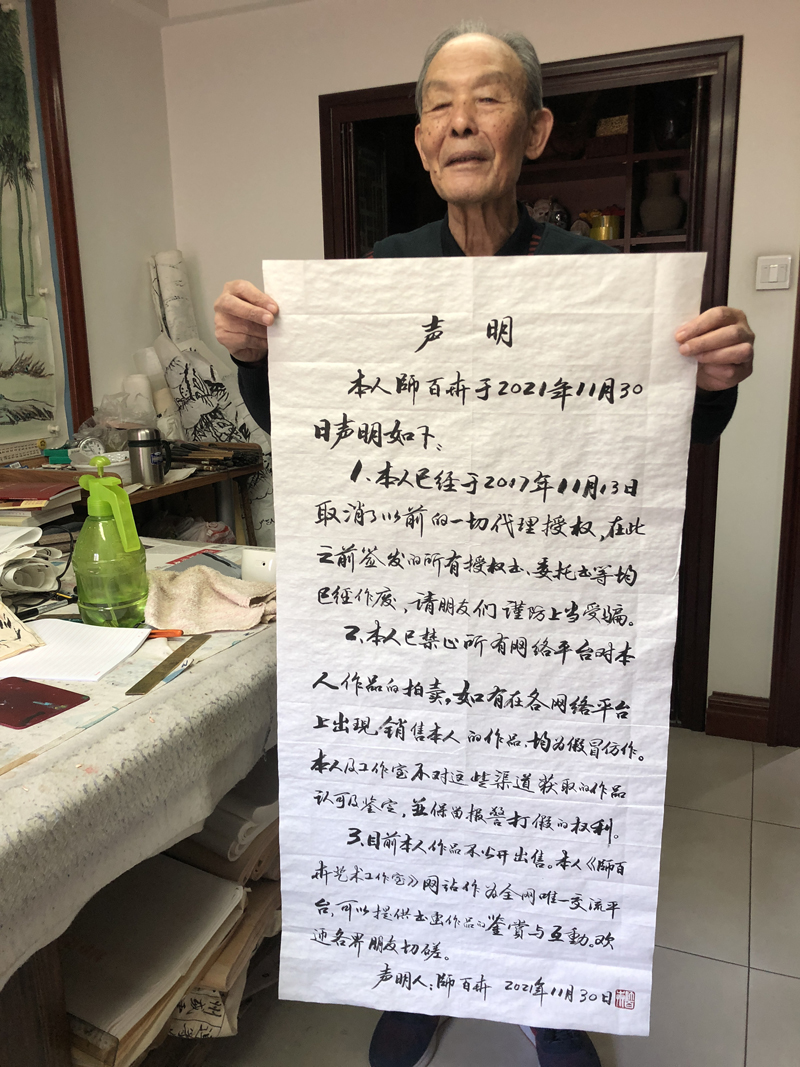 声 明
本人師百卉于2021年11月30
日声明如下:
1.本人已经于2017年11月13日
取消了以前的一切代理授权,在此
之前签发的所有授权书、委托书等均
已经作废,请朋友们谨防上当受骗。
2.本人已禁止所有网络平台对本
人作品的拍卖,如有在各网络平台
上出现、销售本人的作品、均为假冒仿作。
本人及工作室不对这些渠道获取的作品
认可及鉴定,並保留报警打假的权利。
3.目前本人作品不公开出售。本人《師百
卉艺术工作室》网站作为全网唯一交流平
台,可以提供书画作品的鉴赏与互動。欢
迎各界朋友切磋。
声明人:師百卉 2021年11月30日